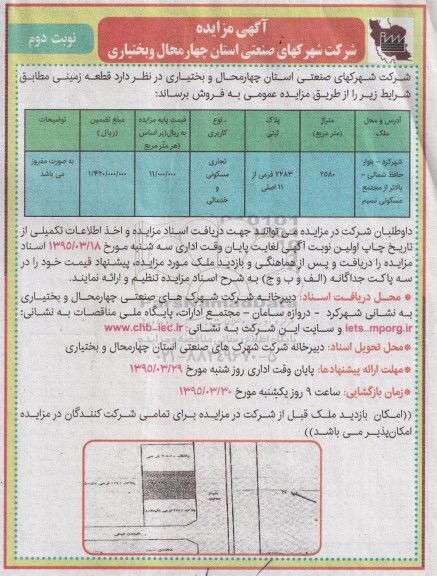 آگهی مزایده
شرکت شهرکهای صنعتی استان چهارمحال وبختیاری
نوبت دوم
شرکت شهرکهای صنعتی استان چهارمحال و بختیاری در نظر دارد قطعه زمینی مطابق
شرایط زیر را از طریق مزایده عمومی به فروش برساند:
آدرس و محل ملک	متراژ (متر مربع)	پلاک ثبتی	نوع کاربری	قیمت پایه مزایده به ریال(بر اساس هر متر مربع	مبلغ تضمین (ریال)	توضیحات
شهرکرد – بلوار حافظ شمالی – بالاتر از مجتمع مسکونی نسیم	۲۵۸۰	۲۲۸۳ فرعی از ۱۱ اصلی	تجاری مسکونی و خدماتی	۱۱/۰۰۰/۰۰۰	۱/۴۲۰/۰۰۰/۰۰۰	به صورت مفروز می باشد
داوطلبان شرکت در مزایده می توانند جهت دریافت اسناد مزایده و اخذ اطلاعات تکمیلی از
تاریخ چاپ اولین نوبت آگهی لغایت پایان وقت اداری سه شنبه مورخ ۱۳۹۵/۰۳/۱۸ اسناد
مزایده را دریافت و پس از هماهنگی و بازدید ملک مورد مزایده، پیشنهاد قیمت خود را در
سه پاکت جداگانه (الف و ب و ج) به شرح اسناد مزایده تنظیم و ارائه نمایند.
* محل دریافت اسناد: دبیرخانه شرکت شهرک های صنعتی چهارمحال و بختیاری
به نشانی شهرکرد - دروازه سامان – مجتمع ادارات، پایگاه ملی مناقصات به نشانی:
iets.mporg.ir و سایت این شرکت به نشانی: www.chb-iec.ir
*محل تحویل اسناد: دبیرخانه شرکت شهرک های صنعتی استان چهارمحال و بختیاری
*مهلت ارائه پیشنهادها: پایان وقت اداری روز شنبه مورخ ۱۳۹۵/۰۳/۲۹
*زمان بازگشایی: ساعت ۹ روز یکشنبه مورخ ۱۳۹۵/۰۳/۳۰
((امکان بازدید ملک قبل از شرکت در مزایده برای تمامی شرکت کنندگان در مزایده
امکان‌پذیر می باشد))